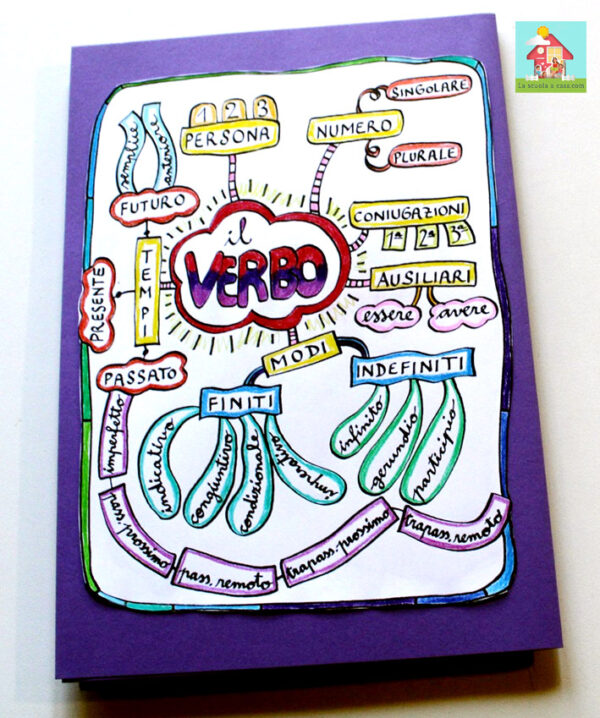 La scuola a casa.com
il
VERBO
PERSONA
1 2 3
NUMERO
SINGOLARE
PLURALE
CONIUGAZIONI
1ª 2ª 3ª
AUSILIARI
essere
avere
MODI
FINITI
indicativo
congiuntivo
condizionale
imperativo
INDEFINITI
infinito
gerundio
participio
TEMPI
FUTURO
semplice
anteriore
PRESENTE
PASSATO
imperfetto
pass. prossimo
pass. remoto
trapass. prossimo
trapass. remoto